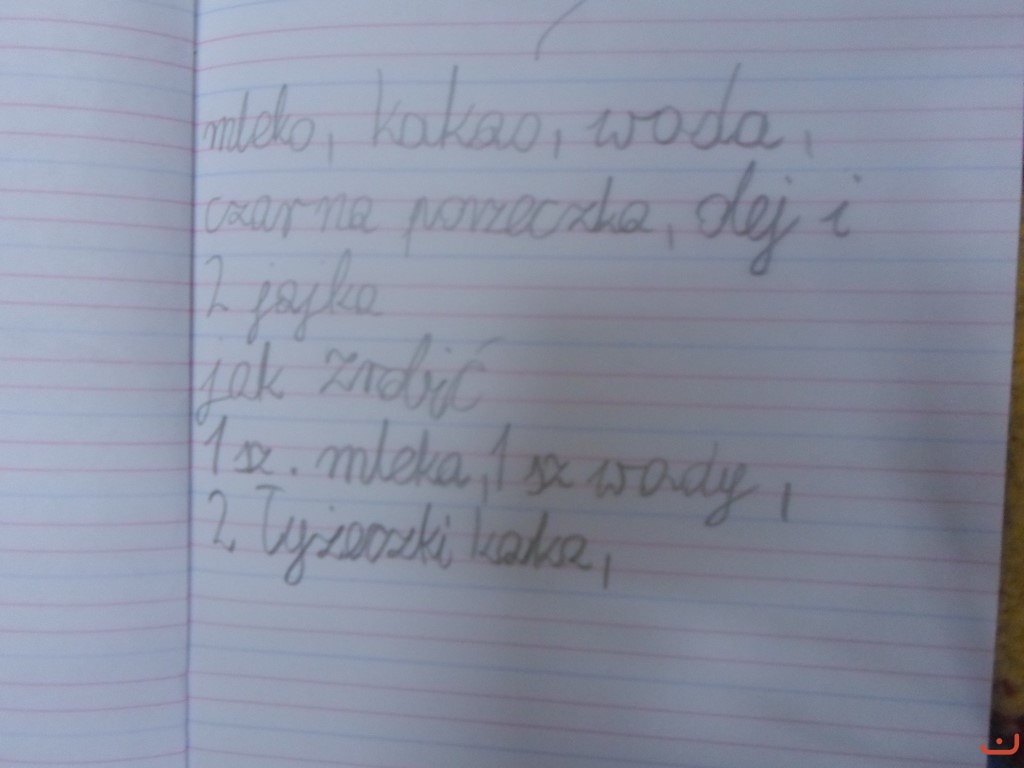 mleko, kakao, woda,
czarna porzeczka, olej i
2 jajka
jak zrobić
1 sz. mleka, 1 sz wody,
2 łyżeczki kaka,